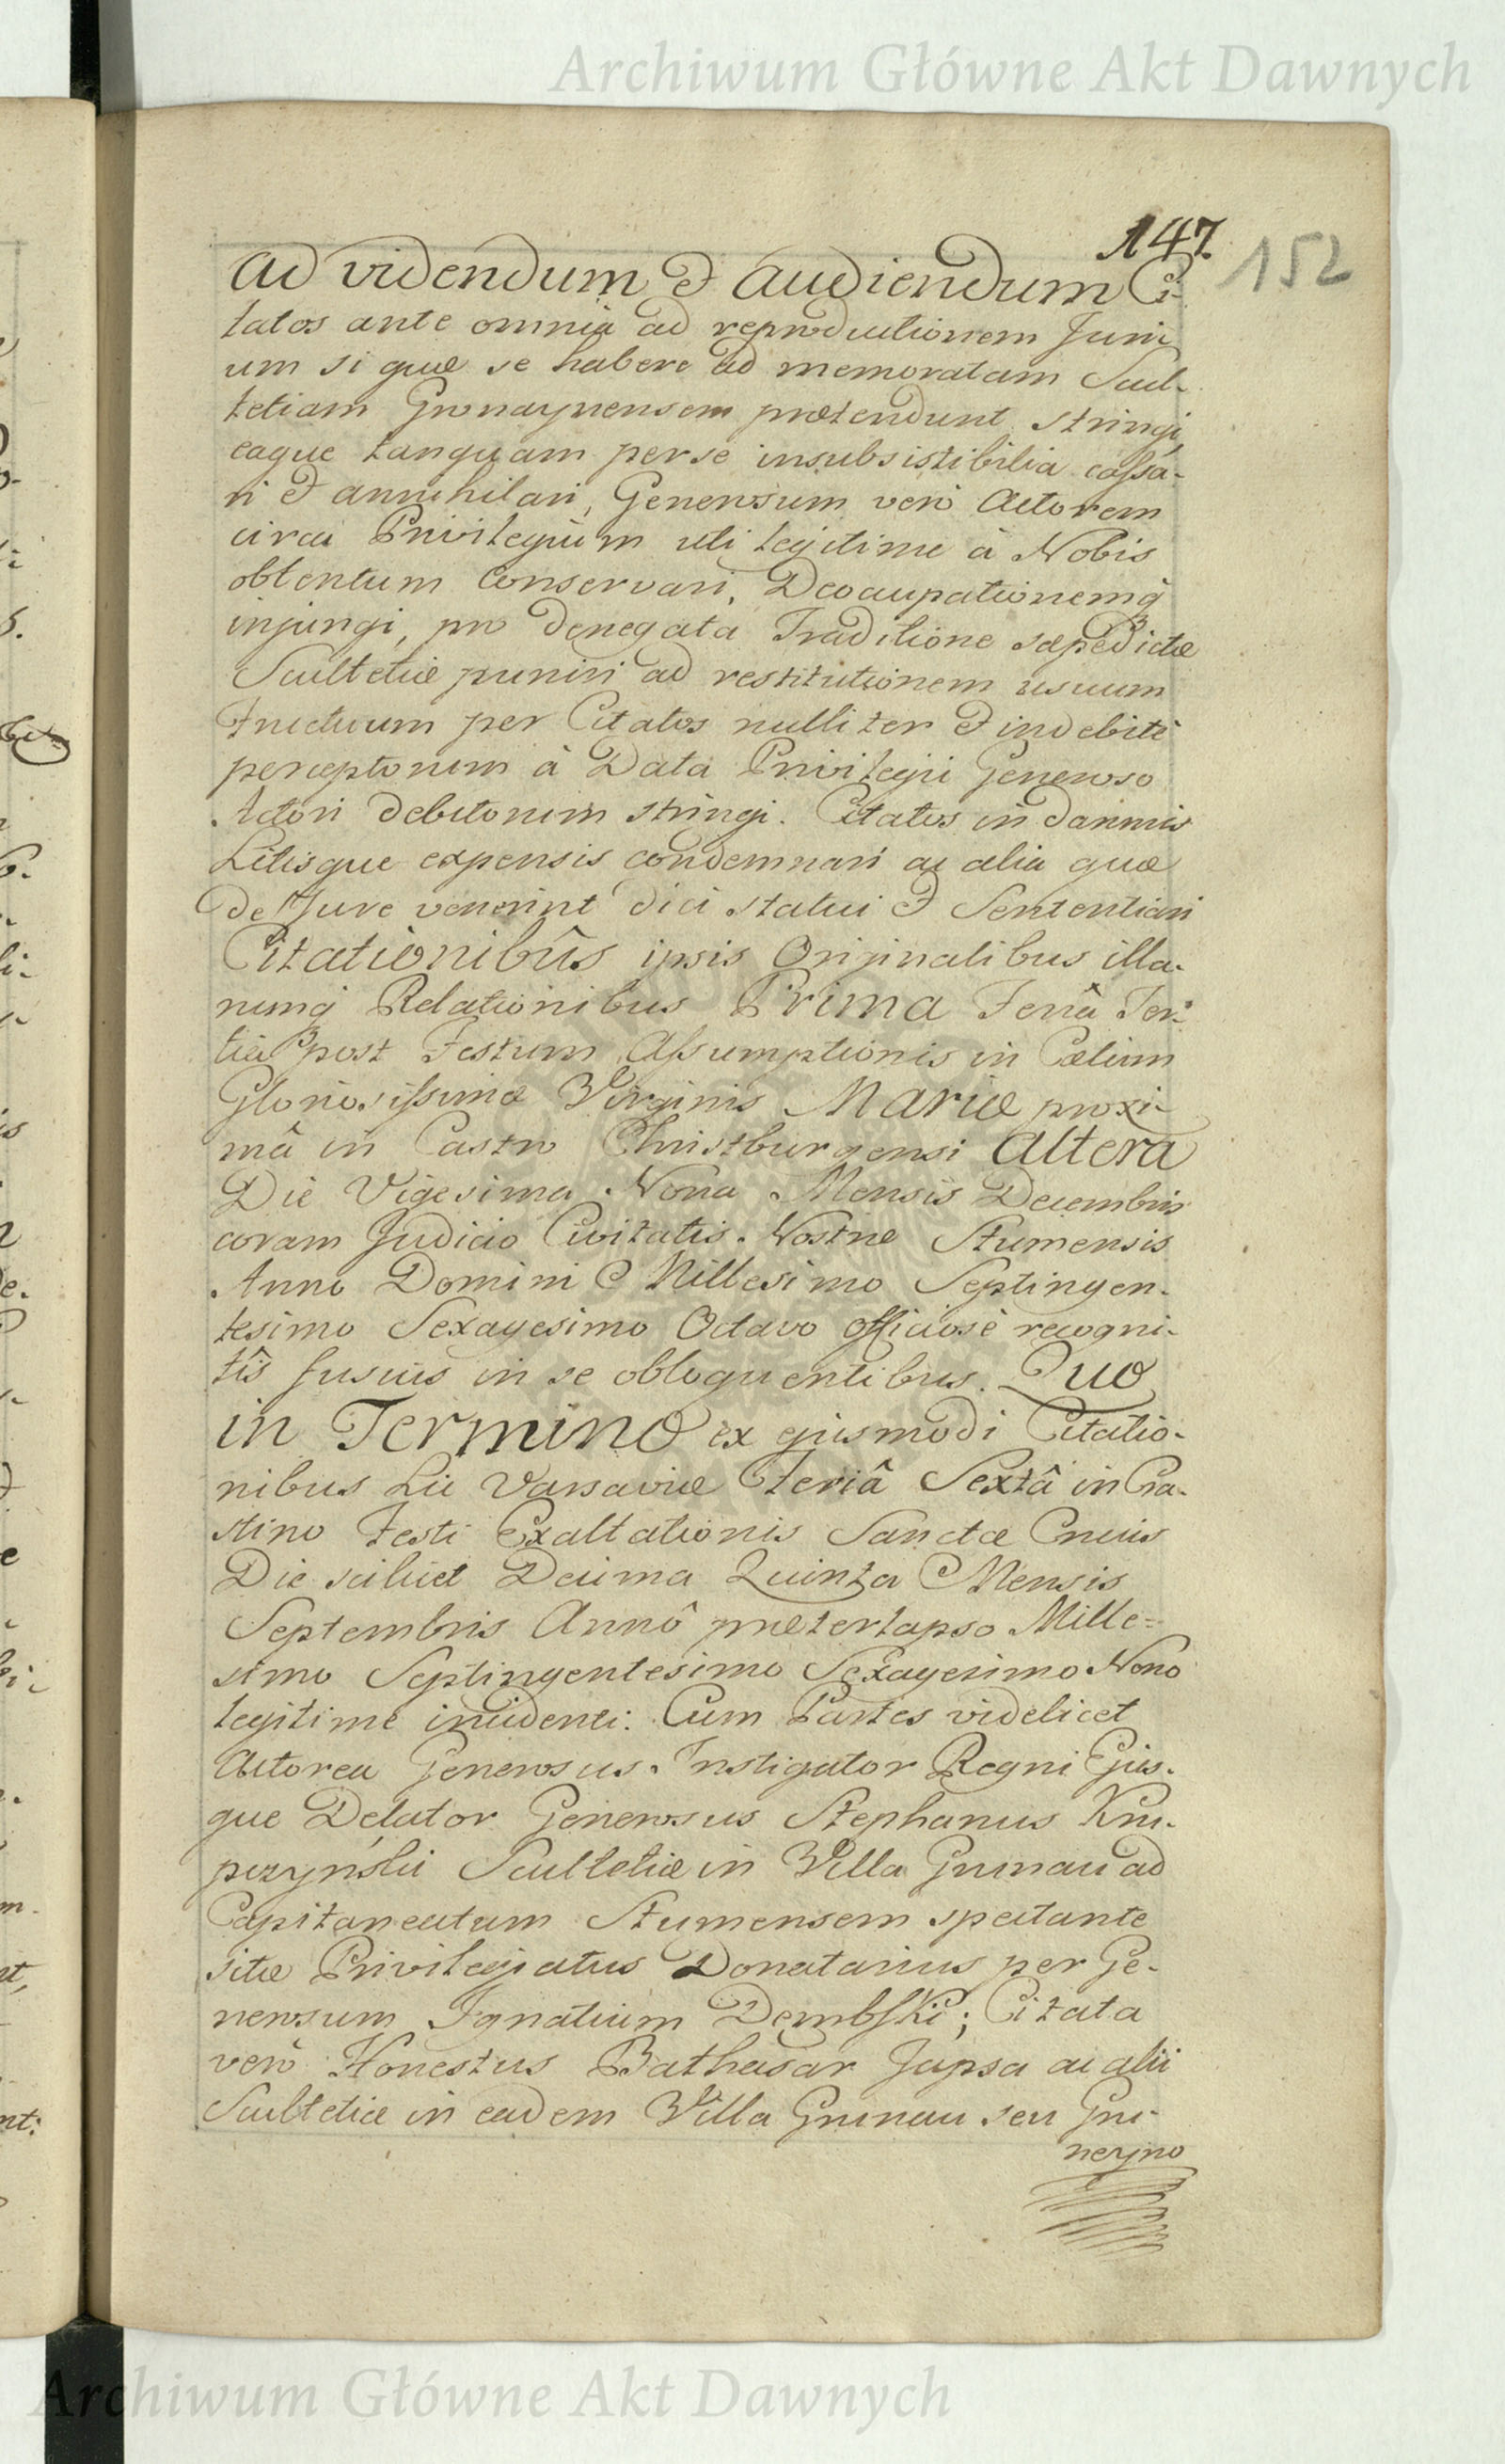 Archiwum Główne Akt Dawnych
147.
152
ad videndum et audiendum Ci-
tatos ante omnia ad reproductionem Juri-
um si quæ se habere ad memoratam Scul-
tetiam Gronaynensem prætendunt stringi
eaque tanquam per se insubsistibilia cassa-
ri et annihilari, Generosum verò Actorem
circa Privilegium uti legitime à Nobis
obtentum conservari, Deoccupationemq
injungi, pro denegata Traditione sæpedictæ
Scultetiæ puniri ad restitutionem usuum
Fructuum per Citatos nulliter et indebitè
perceptorum à Data Privilegii Generoso
Actori debitorum stringi. Citatos in damnis
Litisque expensis condemnari ac alia quæ
de Jure venerint dici statui et Sententiari
Citationibûs ipsis Originalibus illa-
rumq Relationibus Prima Feriâ Ter-
tia post Festum Assumptionis in Cœlum
Gloriosissimæ Virginis Mariæ proxi-
mâ in Castro Christburgensi altera
Die Vigesima Nona Mensis Decembris
coram Judicio Civitatis Nostræ Stumensis
Anno Domini Millesimo Septingen-
tesimo Sexagesimo Octavo officiosè recogni-
tîs fusius in se obloquentibus. Quo
in Termino ex ejusmodi Citatio-
nibus huc Varsaviæ Feriâ Sextâ in Cra-
stino Festi Exaltationis Sanctæ Crucis
Die scilicet Decima Quinta Mensis
Septembris Annô præterlapso Mille=
simo Septingentesimo Sexagesimo Nono
legitimè incidenti: Cum Partes videlicet
Actorea Generosus Instigator Regni Ejus-
que Delator Generosus Stephanus Kru-
pczynski Scultetiæ in Villa Grunau ad
Capitaneatum Stumensem spectante
sitæ Privilegiatus Donatarius per Ge-
nerosum Ignatium Dembski; Citata
verò Honestus Bathasar Jupsa ac alii
Scultetiæ in eadem Villa Grunau seu Gru-
neyno
Archiwum Główne Akt Dawnych